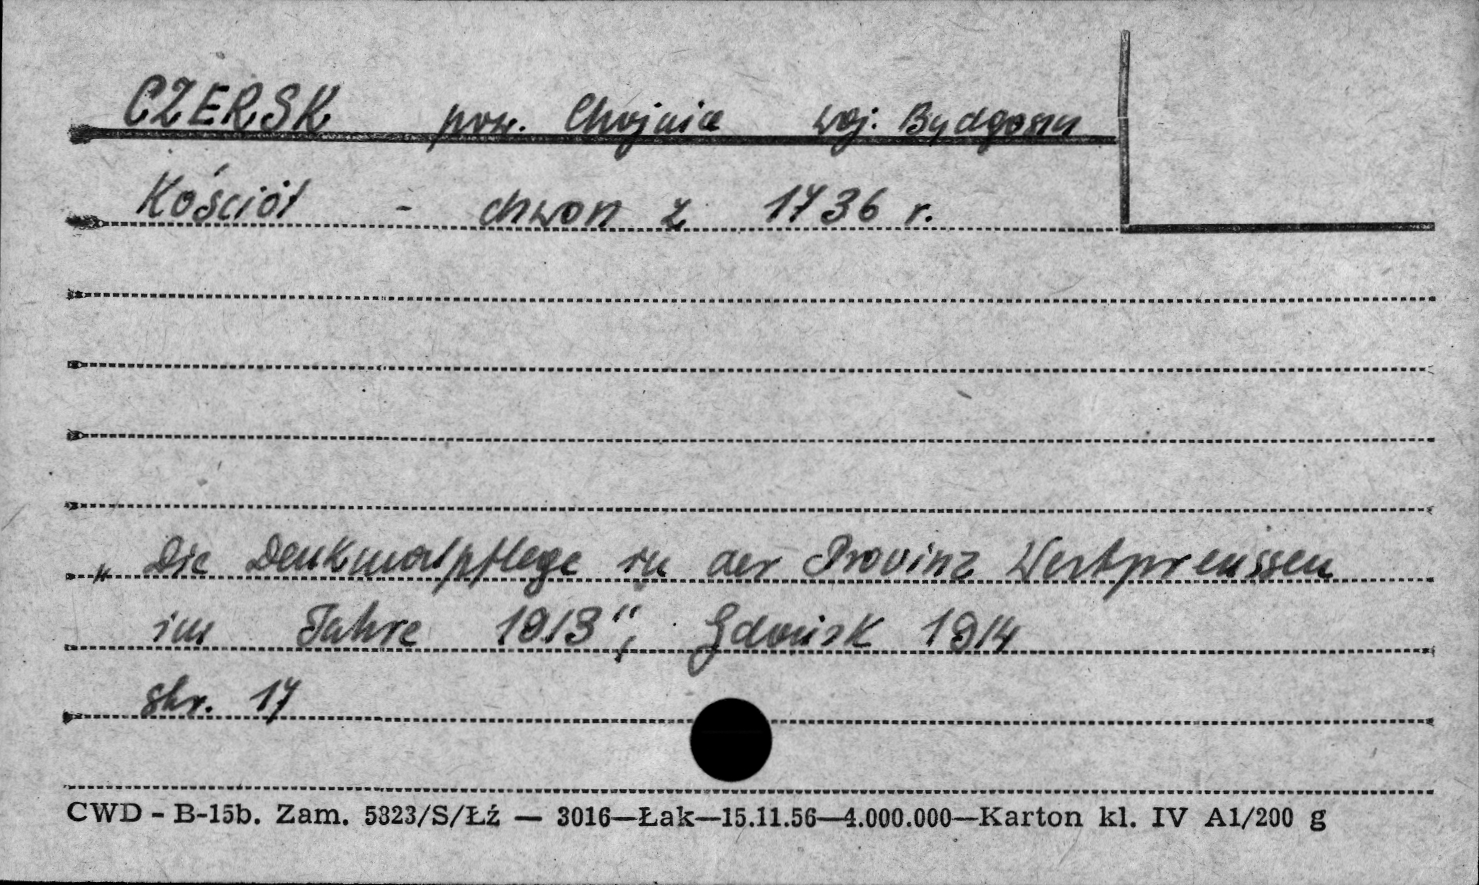 CZERSK pow. Chojnice woj. Bydgoszcz
Kościół - dzwon z 1736 r.
„Die Denkmalpflege in der Provinz Westpreussen
im Jahre 1913", Gdańsk 1914
str. 17
CWD - B-15b. Zam. 5323/S/Łź — 3016—Łak—15.11.56—4.000.000—Karton kl. IV A1/200 g